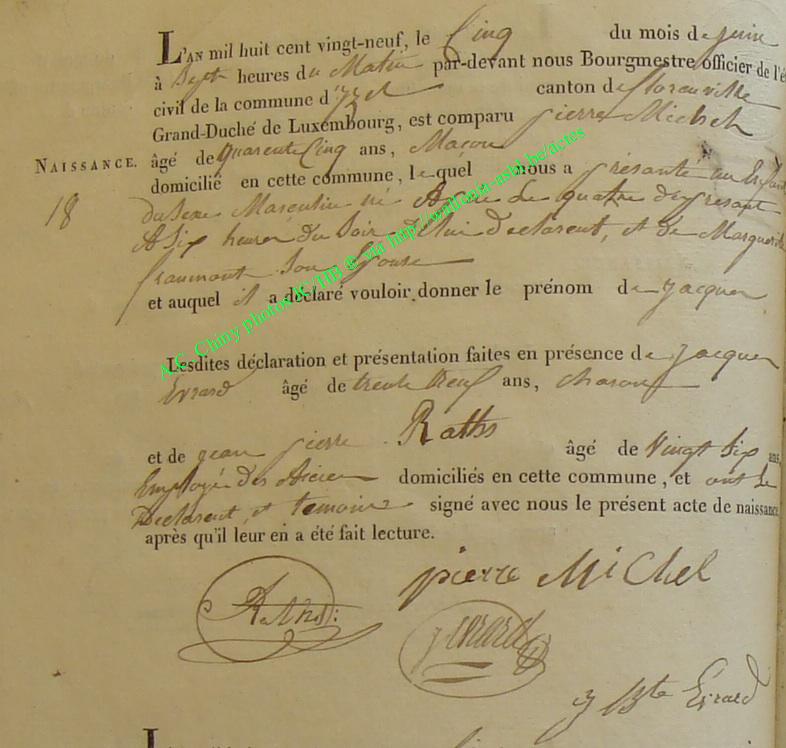 L'AN mil huit cent vingt-neuf, le Cinq du mois de juin
à Sept heures du Matin par-devant nous Bourgmestre officier de l'é
civil de la commune d'Izel canton de florenville
Grand-Duché de Luxembourg, est comparu pierre Michel
NAISSANCE.
âgé de quarente Cinq ans, Macon
domicilié en cette commune, lequel nous a présanté un Enfant
18
du Sexe Masculin né le quatre du présant
A Six heures du Soir de lui Declarent, et de Marguerite
fraumont Son Epouse
et auquel il a déclaré vouloir donner le prénom de jacques
Lesdites déclaration et présentation faites en présence de jacques
Evrard âgé de trente neuf ans, charon
et de jean pierre Raths âgé de Vingt Six ans,
Employé des domiciliés en cette commune, et ont Le
Declarent, et temoins signé avec nous le présent acte de naissance
après qu'il leur en a été fait lecture.
pierre MiChel
Raths
j evrard
j Bte Evrard
L
A.C. Chiny photos JC/HB © via http://wallonia-asbl.be/actes